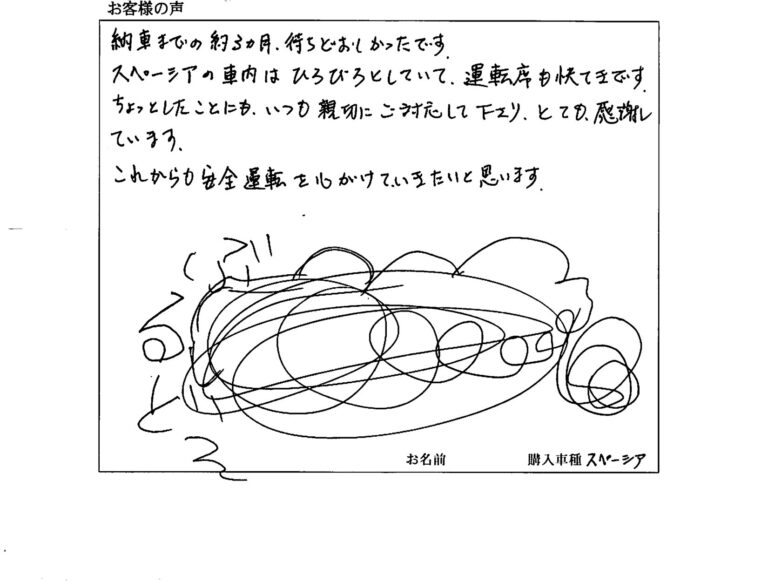 お客様の声
納車までの約3カ月、待ちどおしかったです。
スペーシアの車内はひろびろとしていて、運転席も快てきです。
ちょっとしたことにも、いつも親切にご対応して下さり、とても感謝し
ています。
これからも安全運転を心がけていきたいと思います。
お名前
購入車種 スペーシア